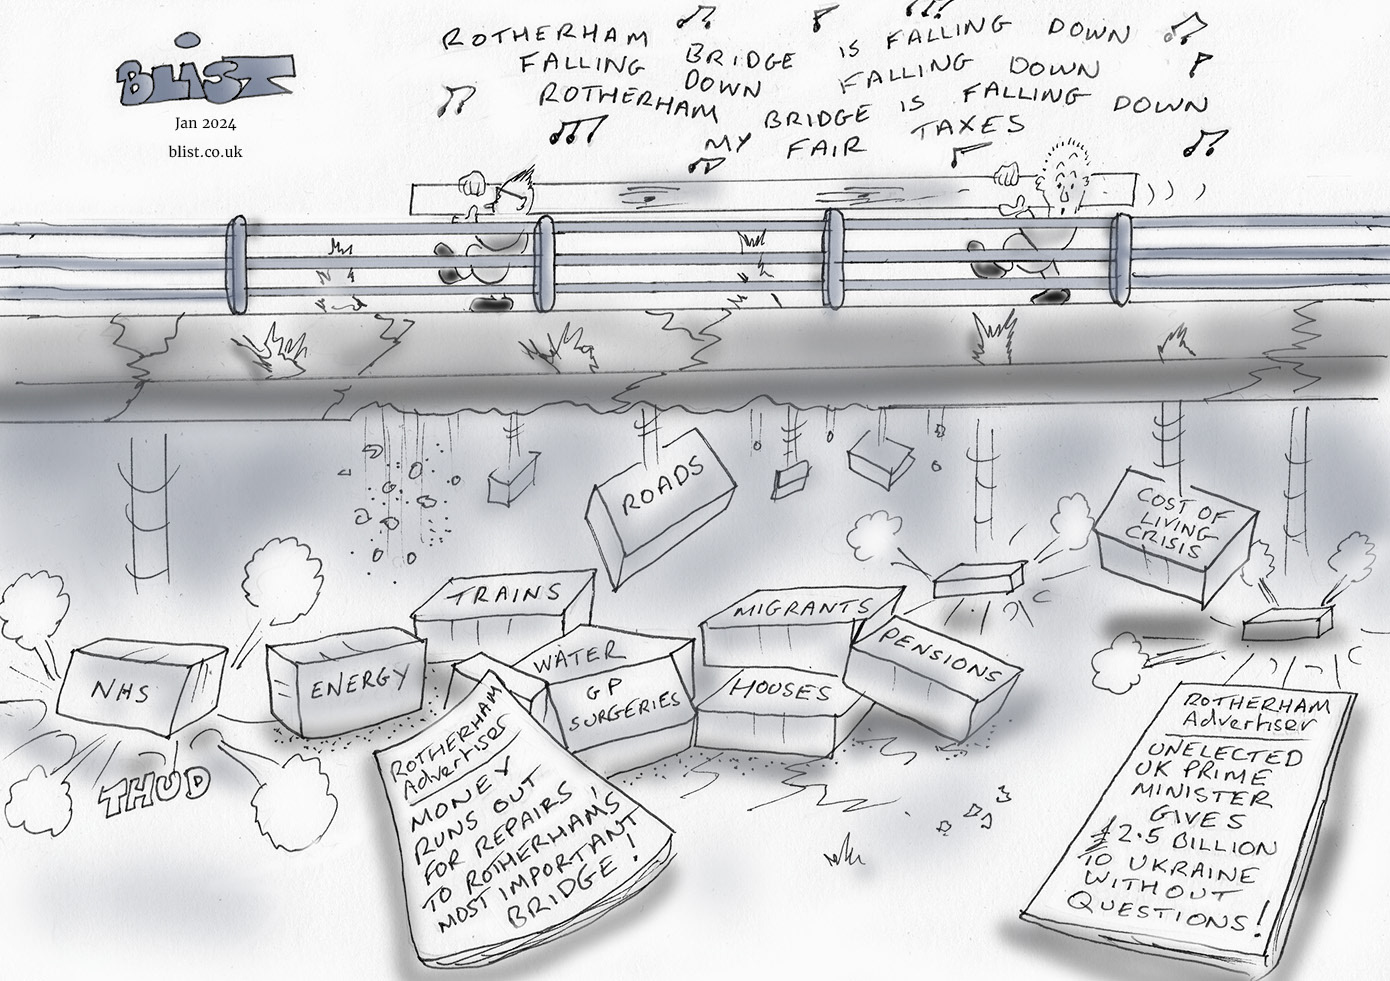 BLIST
Jan 2024
blist.co.uk
ROTHERHAM BRIDGE IS FALLING DOWN
FALLING DOWN FALLING DOWN
ROTHERHAM BRIDGE IS FALLING DOWN
MY FAIR TAXES
ROADS
COST OF
LIVING
CRISIS
TRAINS
MIGRANTS
NHS
ENERGY
WATER
GP
SURGERIES
HOUSES
PENSIONS
THUD
ROTHERHAM
Advertiser
MONEY
RUNS OUT
FOR REPAIRS
TO ROTHERHAM'S
MOST IMPORTANT
BRIDGE!
ROTHERHAM
Advertiser
UNELECTED
UK PRIME
MINISTER
GIVES
£2.5 BILLION
TO UKRAINE
WITHOUT
QUESTIONS!